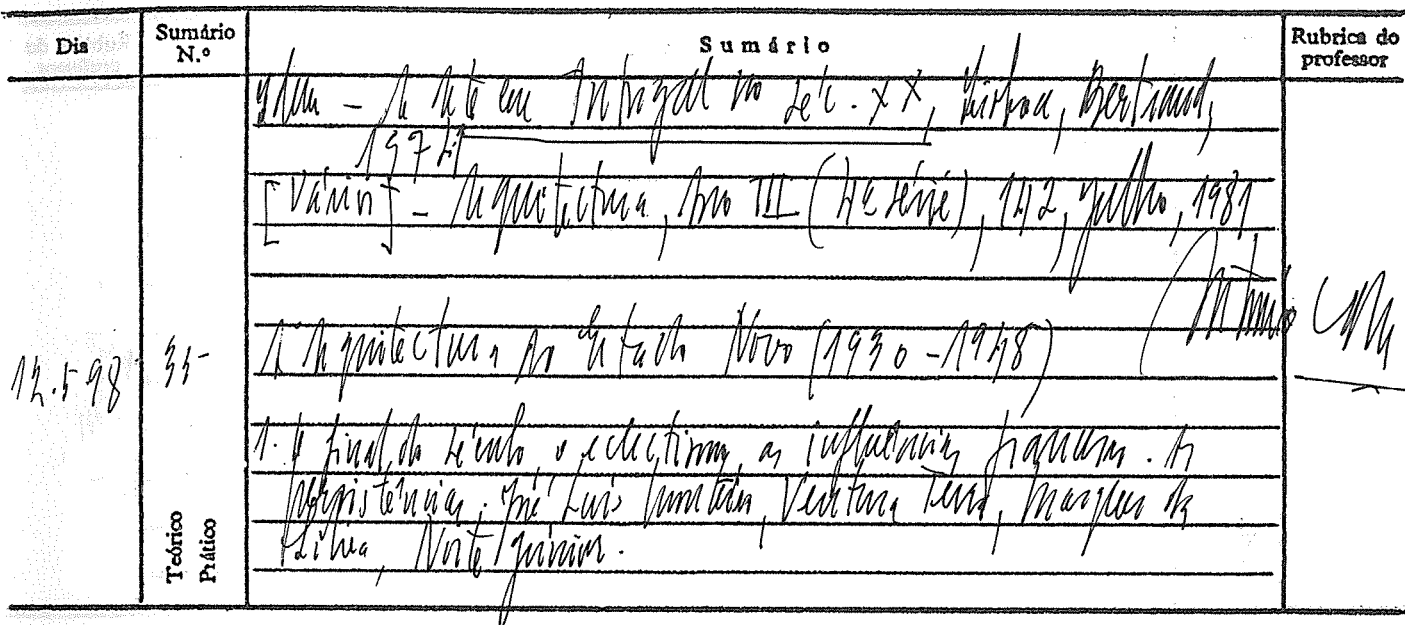 Dia
Sumário N.º
Sumário
Rubrica do professor
Idem - A Arte em Portugal no séc. XX, Lisboa, Bertrand,
1974
[Vários] - Arquitectura, Ano III (4ª série), 142, Julho, 1981
A Arquitectura do Estado Novo (1930-1948)
12.5.98
35
1. O final do século, o eclectismo, as influências francesas. As
persistências: José Luís Monteiro, Ventura Terra, Marques da
Silva, Norte Júnior.
Teórico
Prático